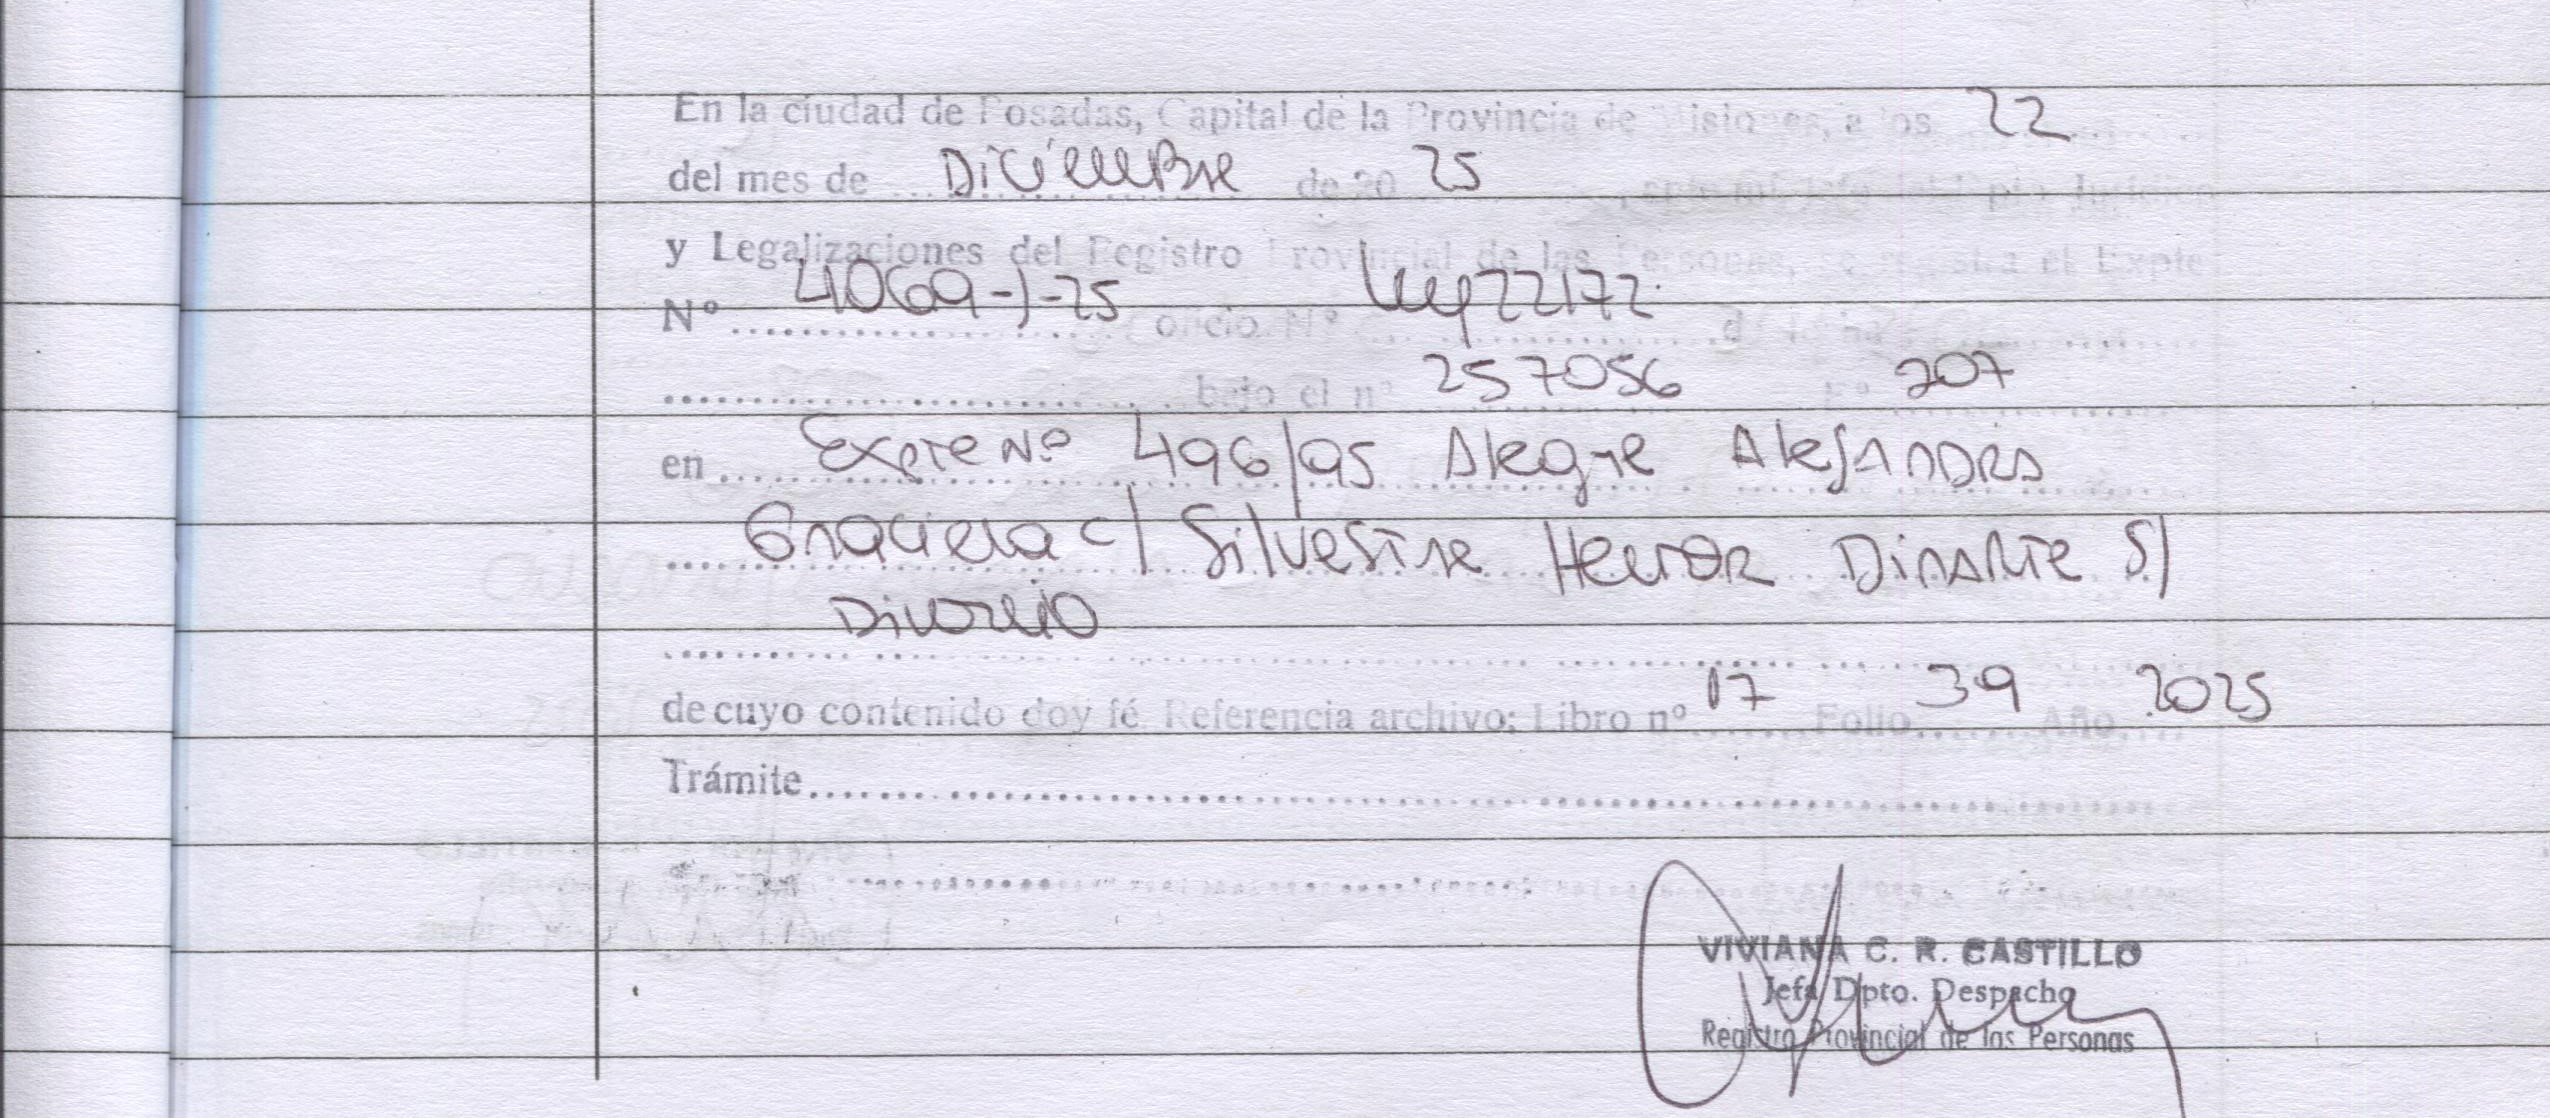 En la ciudad de Posadas, Capital de la Provincia de Misiones, a los 22
del mes de Diciembre de 20 25, ante mi Jefe del Dpto Jurídico
y Legalizaciones del Registro Provincial de las Personas, se registra el Expte
Nº 4069-J-25 oficio Nº Ley 22172
bajo el nº 257056 Fº 207
en Expte Nº 496/95 Alegre Alejandra
Graciela c/ Silvestre Hector Dinarte s/
Divorcio
de cuyo contenido doy fé Referencia archivo: Libro nº 17 Folio 39 Año 2025
Trámite
VIVIANA C. R. CASTILLO
Jefa Dpto. Despacho
Registro Provincial de las Personas